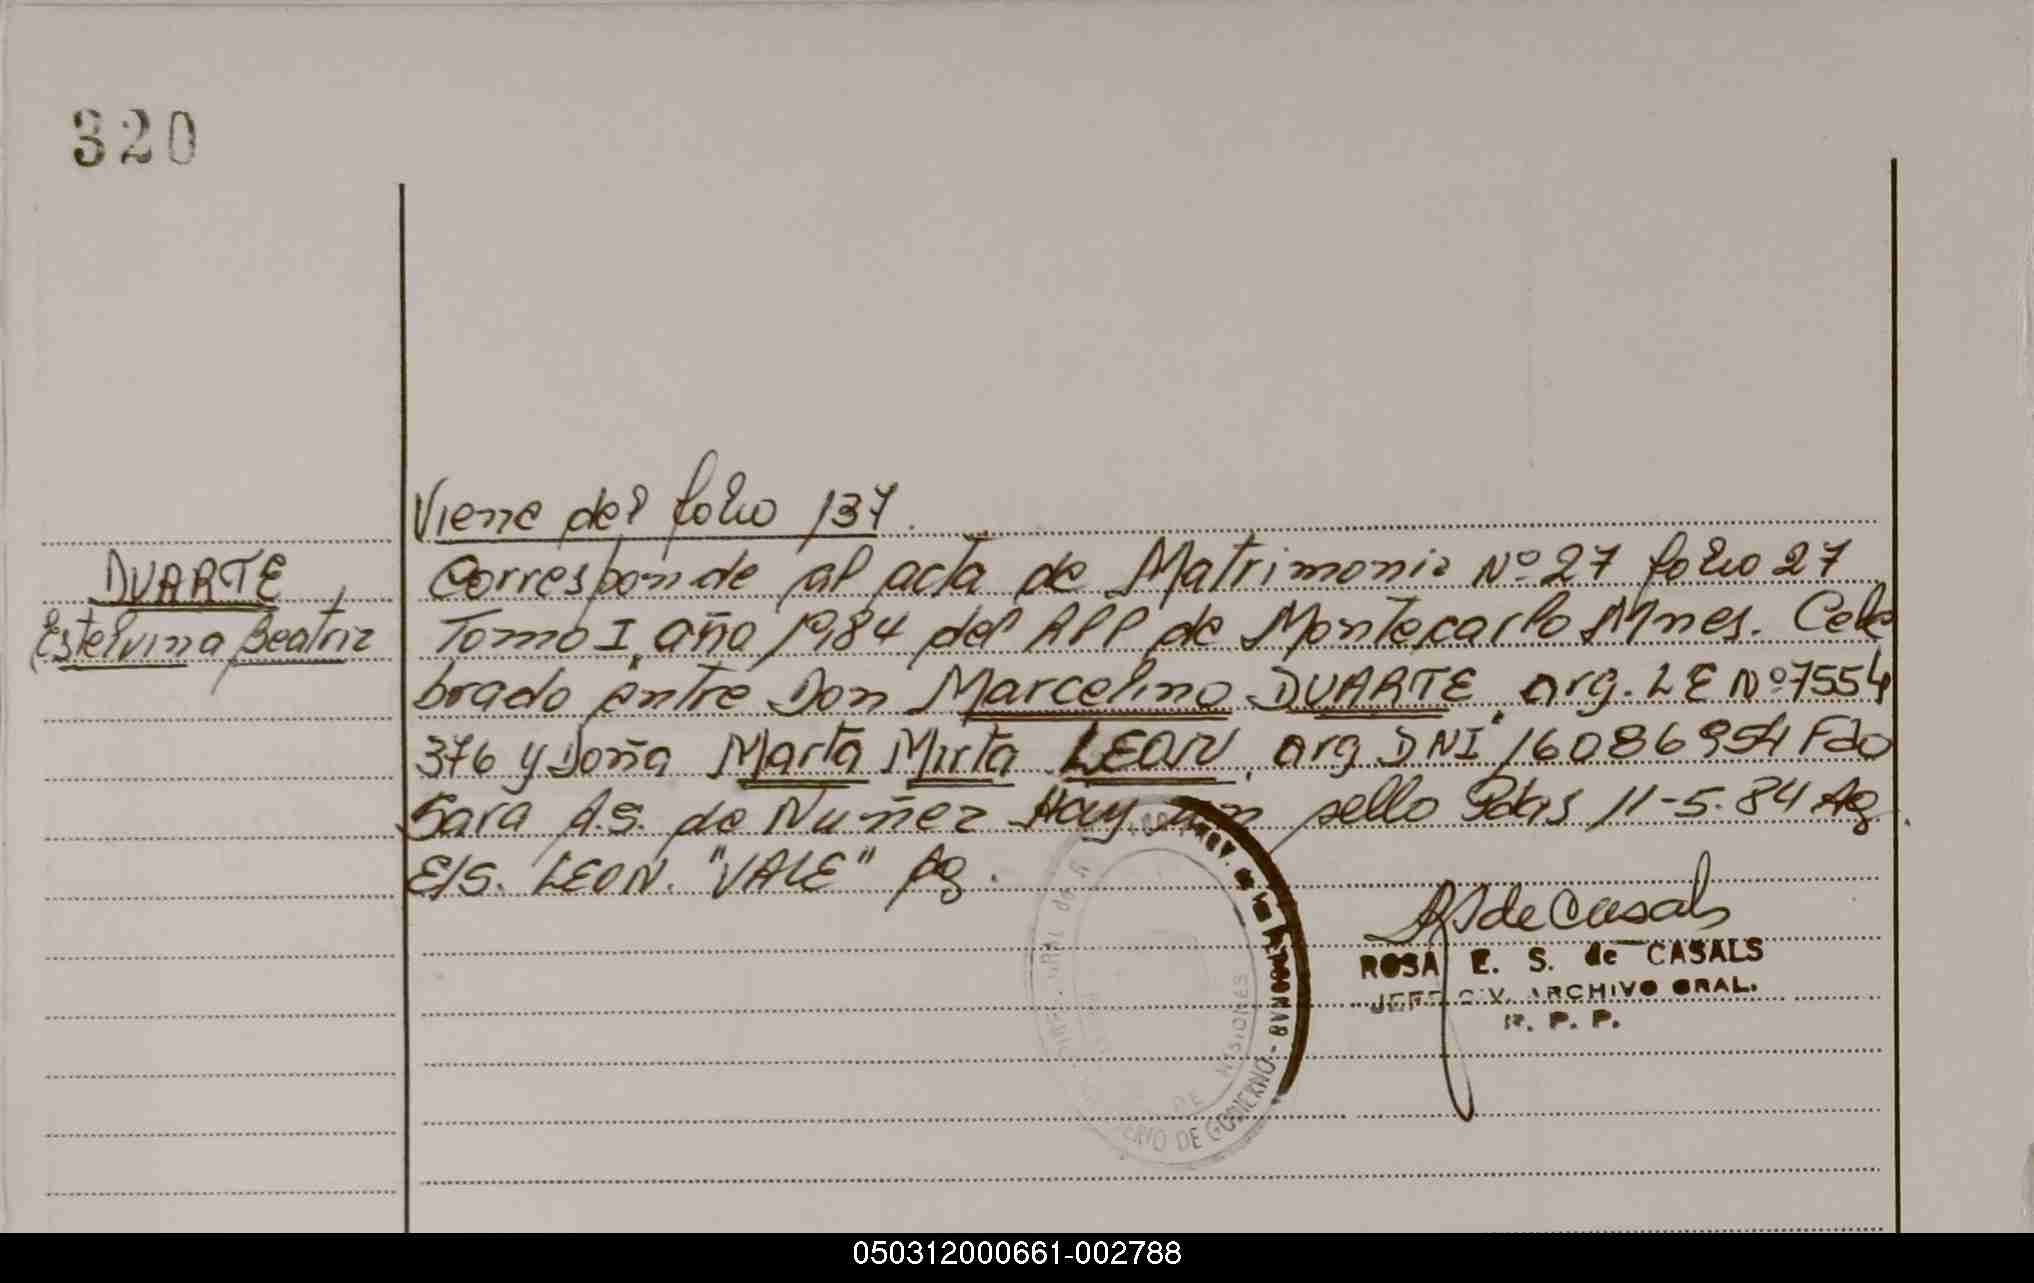 320
Viene del folio 137.
DUARTE
Estelvina Beatriz
Corresponde al acta de Matrimonio Nº 27 folio 27
Tomo I, año 1984 del RPP de Montecarlo Mnes. Cele
brado entre Don Marcelino DUARTE, arg. LE Nº 7554
376 y Doña Marta Mirta LEON, arg DNI 16086954 Fdo
Sara A.S. de Nuñez Hay un sello Pdas 11-5-84 Ag
E/S. LEON. "VALE" Ag.
RS de Casals
ROSA E. S. de CASALS
JEFE DIV. ARCHIVO GRAL.
R. P. P.
DE MISIONES
DE GOBIERNO
050312000661-002788